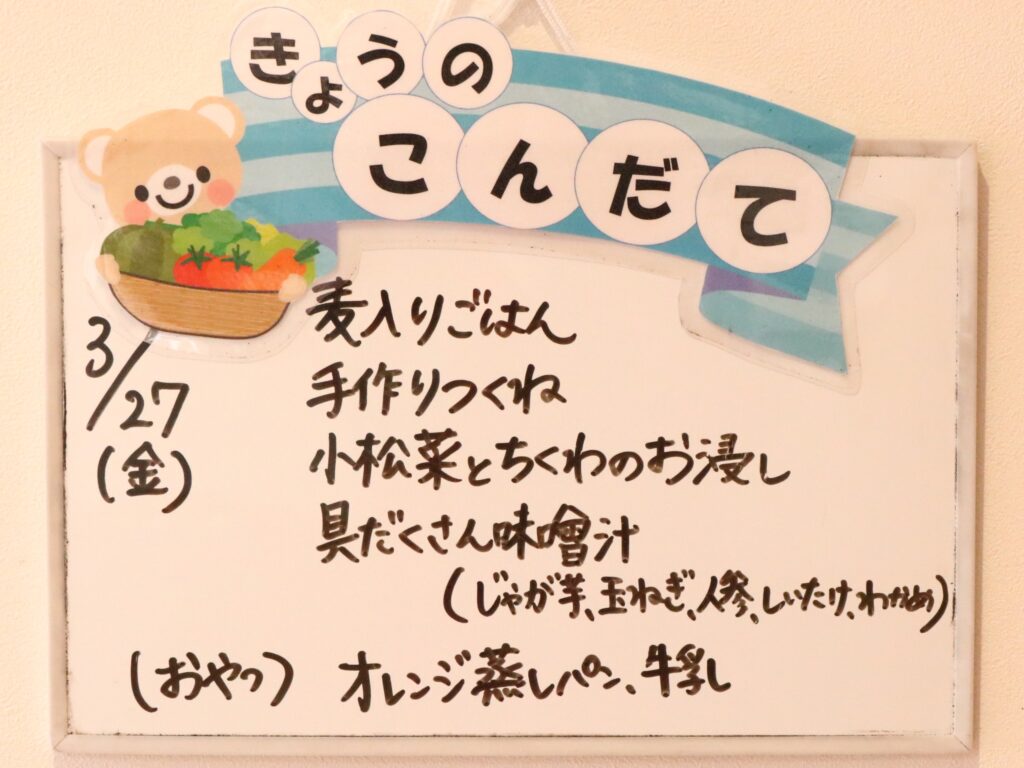 きょうの
こんだて
3/27
(金)
麦入りごはん
手作りつくね
小松菜とちくわのお浸し
具だくさん味噌汁
(じゃが芋、玉ねぎ、人参、しいたけ、わかめ)
(おやつ) オレンジ蒸しパン、牛乳